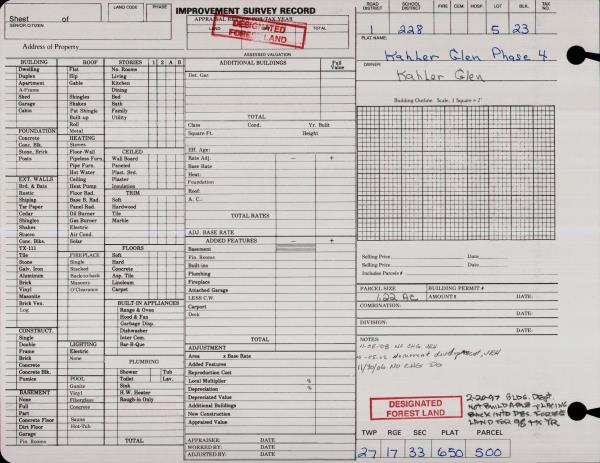 IMPROVEMENT SURVEY RECORD
LAND CODE PHASE
ROAD DISTRICT SCHOOL DISTRICT FIRE CEM. HOSP. LOT BLK. TAX NO.
Sheet of
SENIOR CITIZEN
APPRAISAL REVIEW FOR TAX YEAR
LAND TOTAL
DESIGNATED
FOREST LAND
228 5 23
PLAT NAME:
Kahler Glen Phase 4
OWNER:
Kahler Glen
Address of Property
ASSESSED VALUATION
BUILDING ROOF STORIES 1 2 A B
Dwelling Flat No. Rooms
Duplex Hip Living
Apartment Gable Kitchen
A-Frame Dining
Shed Shingles Bed
Garage Shakes Bath
Cabin Pat Shingle Family
Built-up Utility
Roll
FOUNDATION Metal
Concrete HEATING
Conc. Blk. Stoves
Stone, Brick Floor-Wall CEILED
Posts Pipeless Furn. Wall Board
Pipe Furn. Paneled
Hot Water Plast. Brd.
EXT. WALLS Ceiling Plaster
Brd. & Bats Heat Pump Insulation
Rustic Floor Rad. TRIM
Shiplap Base B. Rad. Soft
Tar Paper Panel Rad. Hardwood
Cedar Oil Burner Tile
Shingles Gas Burner Marble
Shakes Electric
Stucco Air Cond.
Conc. Blks. Solar
TX-111 FLOORS
Tile FIREPLACE Soft
Stone Single Hard
Galv. Iron Stacked Concrete
Aluminum Back-to-back Asp. Tile
Brick Masonry Linoleum
Vinyl O'Clearance Carpet
Masonite
Brick Ven. BUILT-IN APPLIANCES
Log Range & Oven
Hood & Fan
Garbage Disp.
CONSTRUCT. Dishwasher
Single Inter Com.
Double LIGHTING Bar-B-Que
Frame Electric
Brick None
Concrete PLUMBING
Concrete Blk. Shower Tub
Pumice POOL Toilet Lav.
Gunite Sink
BASEMENT Vinyl H.W. Heater
None Fiberglass Rough-in Only
Full Concrete
Part
Concrete Floor Sauna
Dirt Floor Hot-Tub
Garage
Fin. Rooms TOTAL
ADDITIONAL BUILDINGS Full Value
Det. Gar.
TOTAL
Class Cond. Yr. Built
Square Ft. Height
Eff. Age:
Rate Adj. − +
Base Rate
Heat:
Foundation
Roof:
A. C.:
TOTAL RATES
ADJ. BASE RATE
ADDED FEATURES − +
Basement
Fin. Rooms
Built-ins
Plumbing
Fireplace
Attached Garage
LESS C.W.
Carport
Deck
TOTAL
ADJUSTMENT
Area x Base Rate
Added Features
Reproduction Cost
Local Multiplier %
Depreciation %
Depreciated Value
Additional Buildings
New Construction
Appraised Value
APPRAISER: DATE
WORKED BY: DATE
ADJUSTED BY: DATE
Building Outline Scale, 1 Square = 2'
Selling Price Date
Selling Price Date
Includes Parcels #
PARCEL SIZE BUILDING PERMIT #
1.22 AC AMOUNT $ DATE:
COMBINATION:
DATE:
DIVISION:
DATE:
NOTES:
11/30/06 NO CHG DO
DESIGNATED
FOREST LAND
2-20-97 BLDG. DEPT
NOT BUILDABLE - PLACING
BACK INTO DES. FOREST
LAND FOR 98 TX YR
TWP RGE SEC PLAT PARCEL
27 17 33 650 500